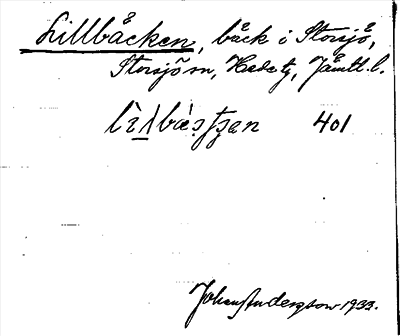 Lillbäcken, bäck i Storsjö,
Storsjö sn, Hede tg, Jämtl. l.
401
Johan Anderson 1933.